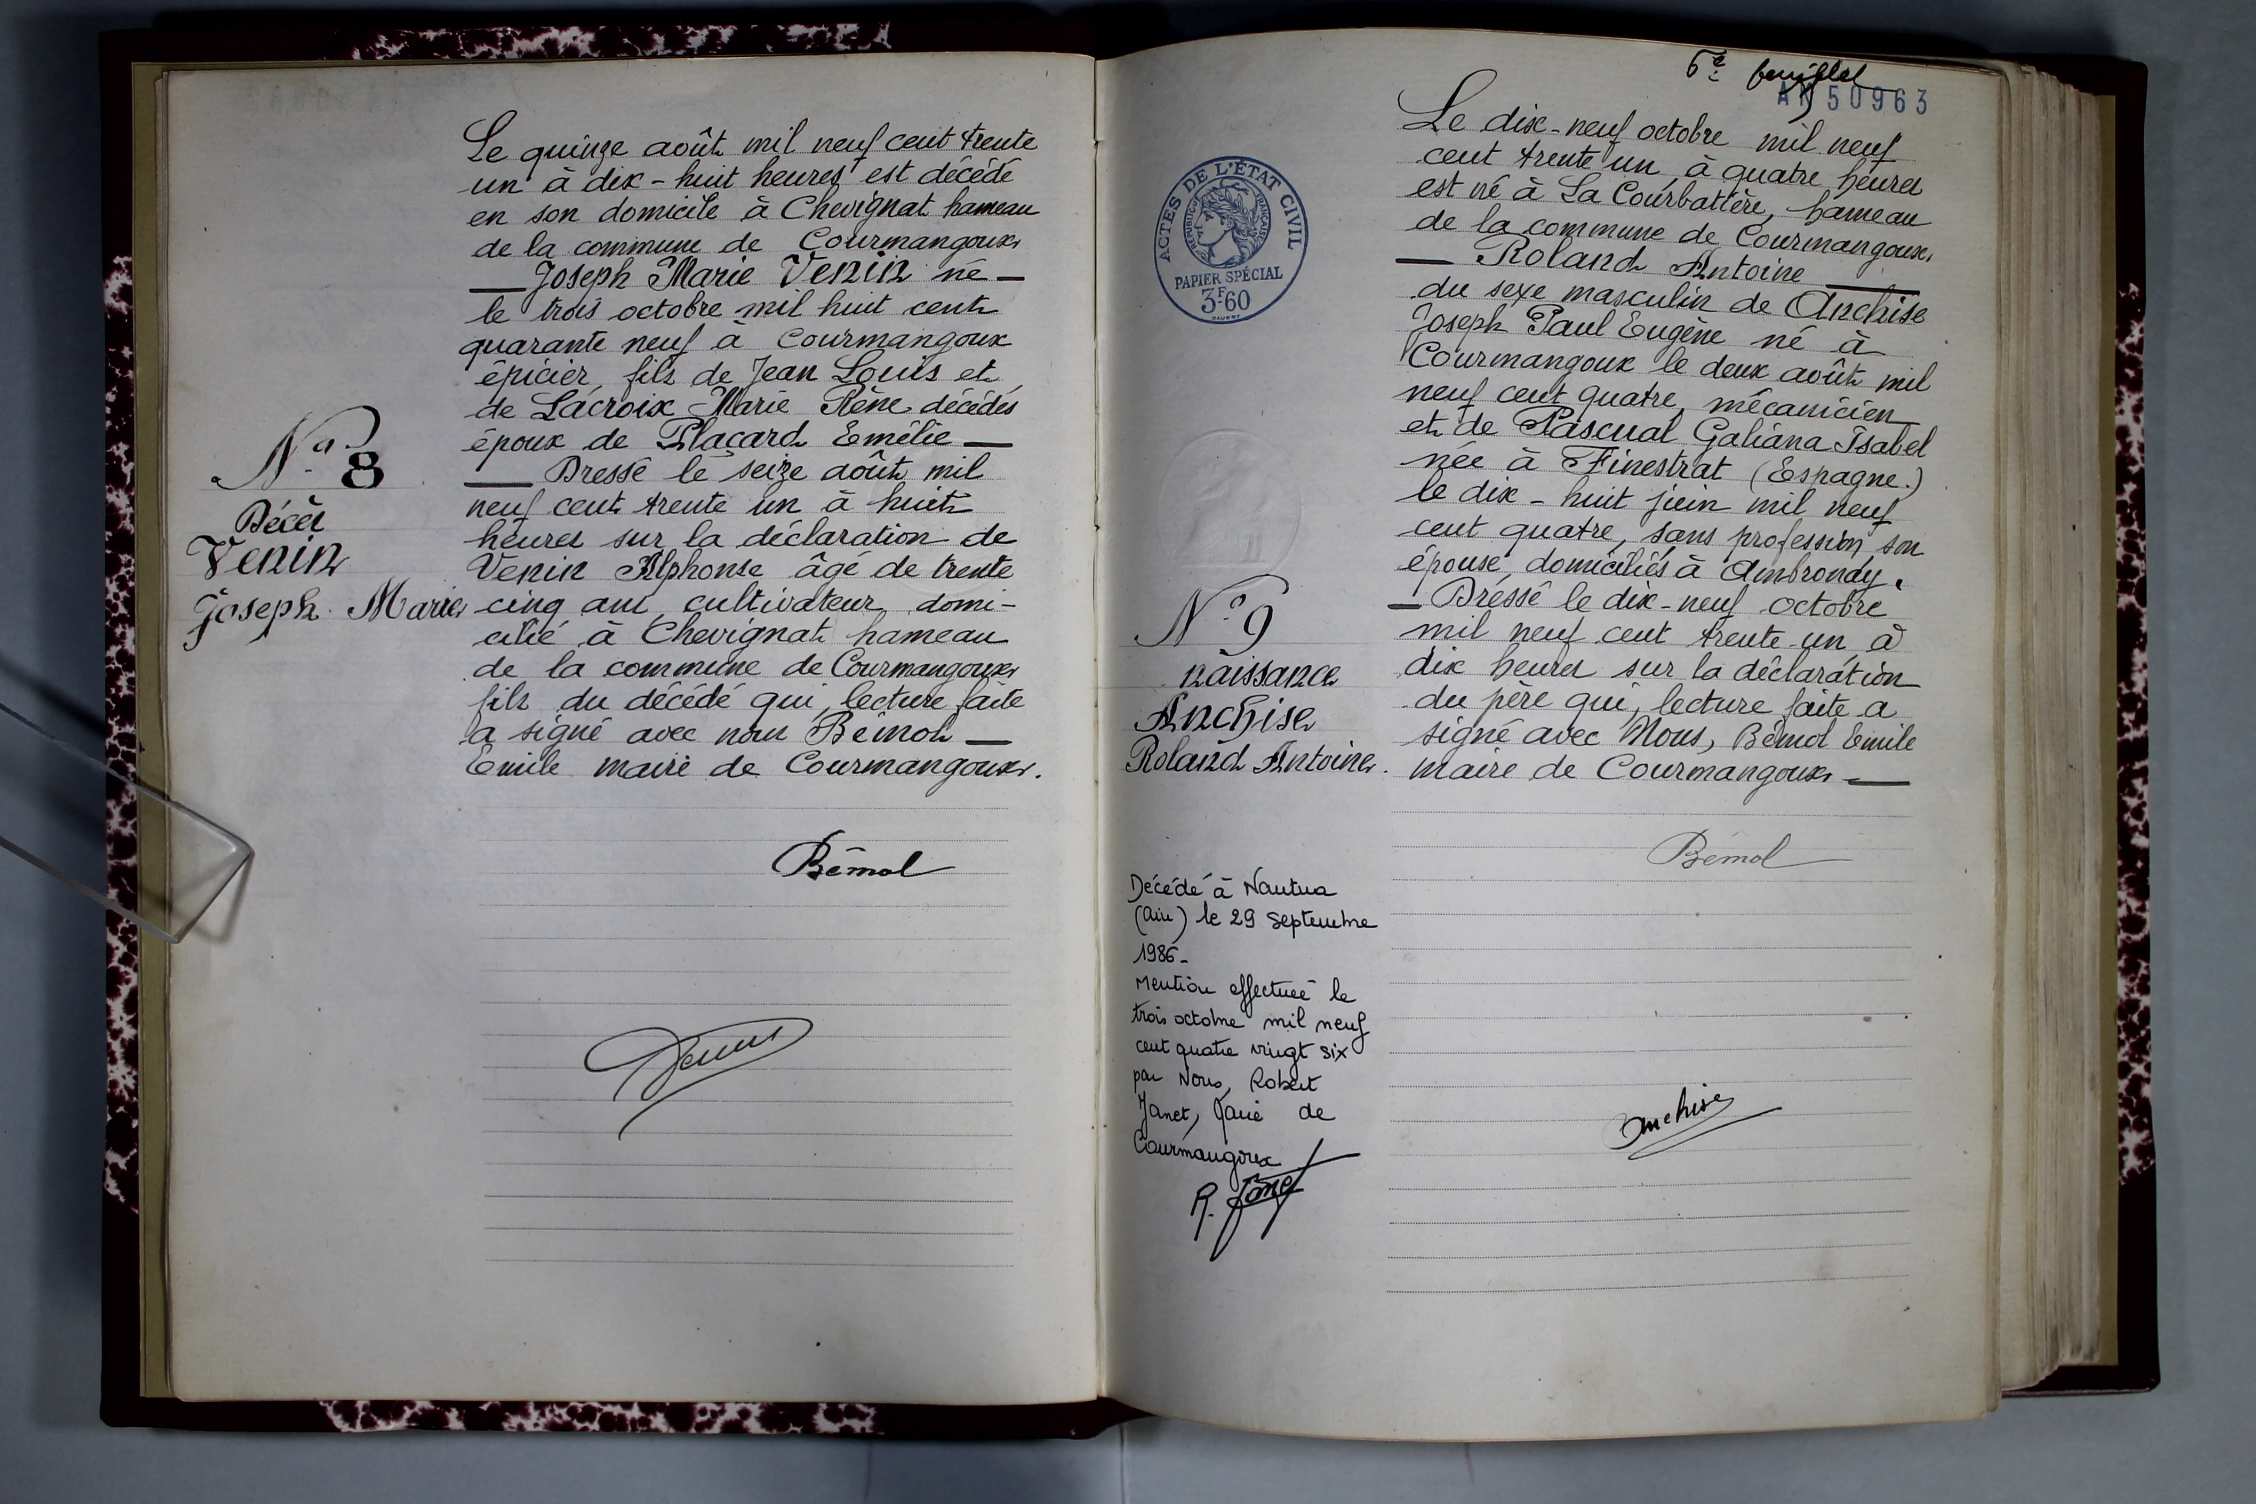 Le quinze août mil neuf cent trente
un à dix-huit heures est décédé
en son domicile à Chevignat hameau
de la commune de Courmangoux
Joseph Marie Venin né
le trois octobre mil huit cent
quarante neuf à Courmangoux
épicier, fils de Jean Louis et
de Lacroix Marie Rène décédés
époux de Plaçard Emélie
Dressé le seize août mil
neuf cent trente un à huit
heures sur la déclaration de
Venin Alphonse âgé de trente
cinq ans cultivateur domi-
cilié à Chevignat hameau
de la commune de Courmangoux
fils du décédé qui, lecture faite
a signé avec nous Bémol
Emile maire de Courmangoux.
N° 8
Décès
Venin
Joseph Marie
Bémol
Venin
6e feuillet
AN 50963
ACTES DE L'ÉTAT CIVIL
RÉPUBLIQUE FRANÇAISE
PAPIER SPÉCIAL
3F60
Le dix-neuf octobre mil neuf
cent trente un, à quatre heures
est né à La Courbatière, hameau
de la commune de Courmangoux,
Roland Antoine
du sexe masculin de Anchise
Joseph Paul Eugène né à
Courmangoux le deux août mil
neuf cent quatre, mécanicien
et de Pascual Galiana Isabel
née à Finestrat (Espagne.)
le dix-huit juin mil neuf
cent quatre, sans profession, son
épouse, domiciliés à Ambronay.
Dréssé le dix-neuf octobre
mil neuf cent trente-un à
dix heures sur la déclaration
du père qui, lecture faite a
signé avec Nous, Bémol Emile
maire de Courmangoux
N° 9
naissance
Anchise
Roland Antoine.
Bémol
Anchise
Décédé à Nantua
(Ain) le 29 septembre
1986-
Mention effectuée le
trois octobre mil neuf
cent quatre vingt six
par Nous, Robert
Janet, Maire de
Courmangoux
R. Janet